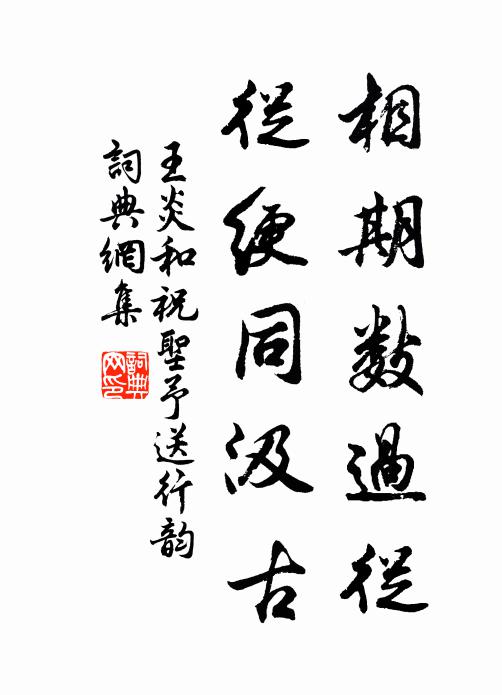 相期數過從
從綆同汲古
王炎和祝聖予送行韵
詞典網集
詞典網印